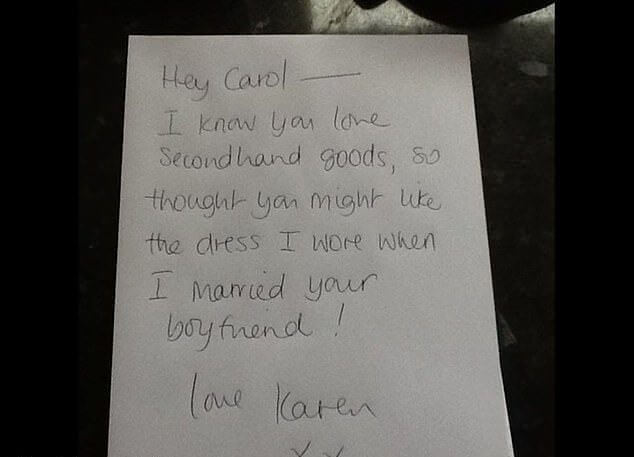 Hey Carol —
I know you love
secondhand goods, so
thought you might like
the dress I wore when
I married your
boyfriend !
love Karen
x x